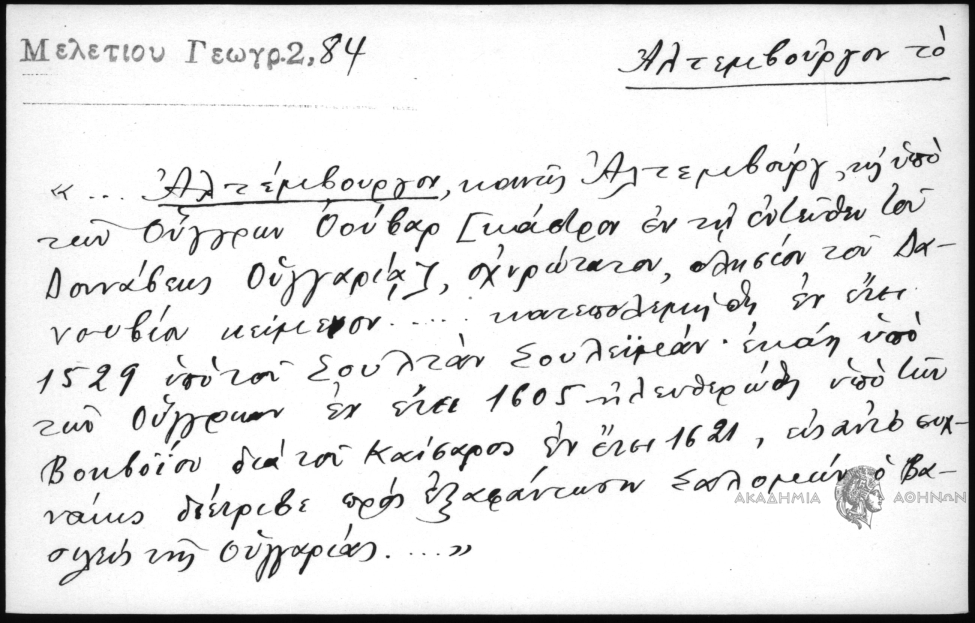 Μελετιου Γεωγρ.2,84
Ἀλτεμβοῦργον τὸ
«... Ἀλτέμβουργον, κοινῶς Ἀλτεμβούργ, τῇ ὑπὸ
τῶν Οὔγγρων Ὀούβαρ [κάστρον ἐν τῇ ἐντεῦθεν τοῦ
Δουνάβεως Οὑγγαρίᾳ], ὀχυρώτατον, πλησίον τοῦ Δα-
νουβίου κείμενον..... κατεπολεμήθη ἐν ἔτει
1529 ὑπὸ τοῦ Σουλτὰν Σουλεϊμάν· ἐκάη ὑπὸ
τῶν Οὔγγρων ἐν ἔτει 1605 ἠλευθερώθη ὑπὸ τῶν
διὰ τοῦ Καίσαρος ἐν ἔτει 1621, εἰς αὐτὸ συχ-
νάκις διέτριβε πρὸς Σαλομὼν ὁ βα-
σιλεὺς τῆς Οὑγγαρίας....»
ΑΚΑΔΗΜΙΑ ΑΘΗΝΩΝ